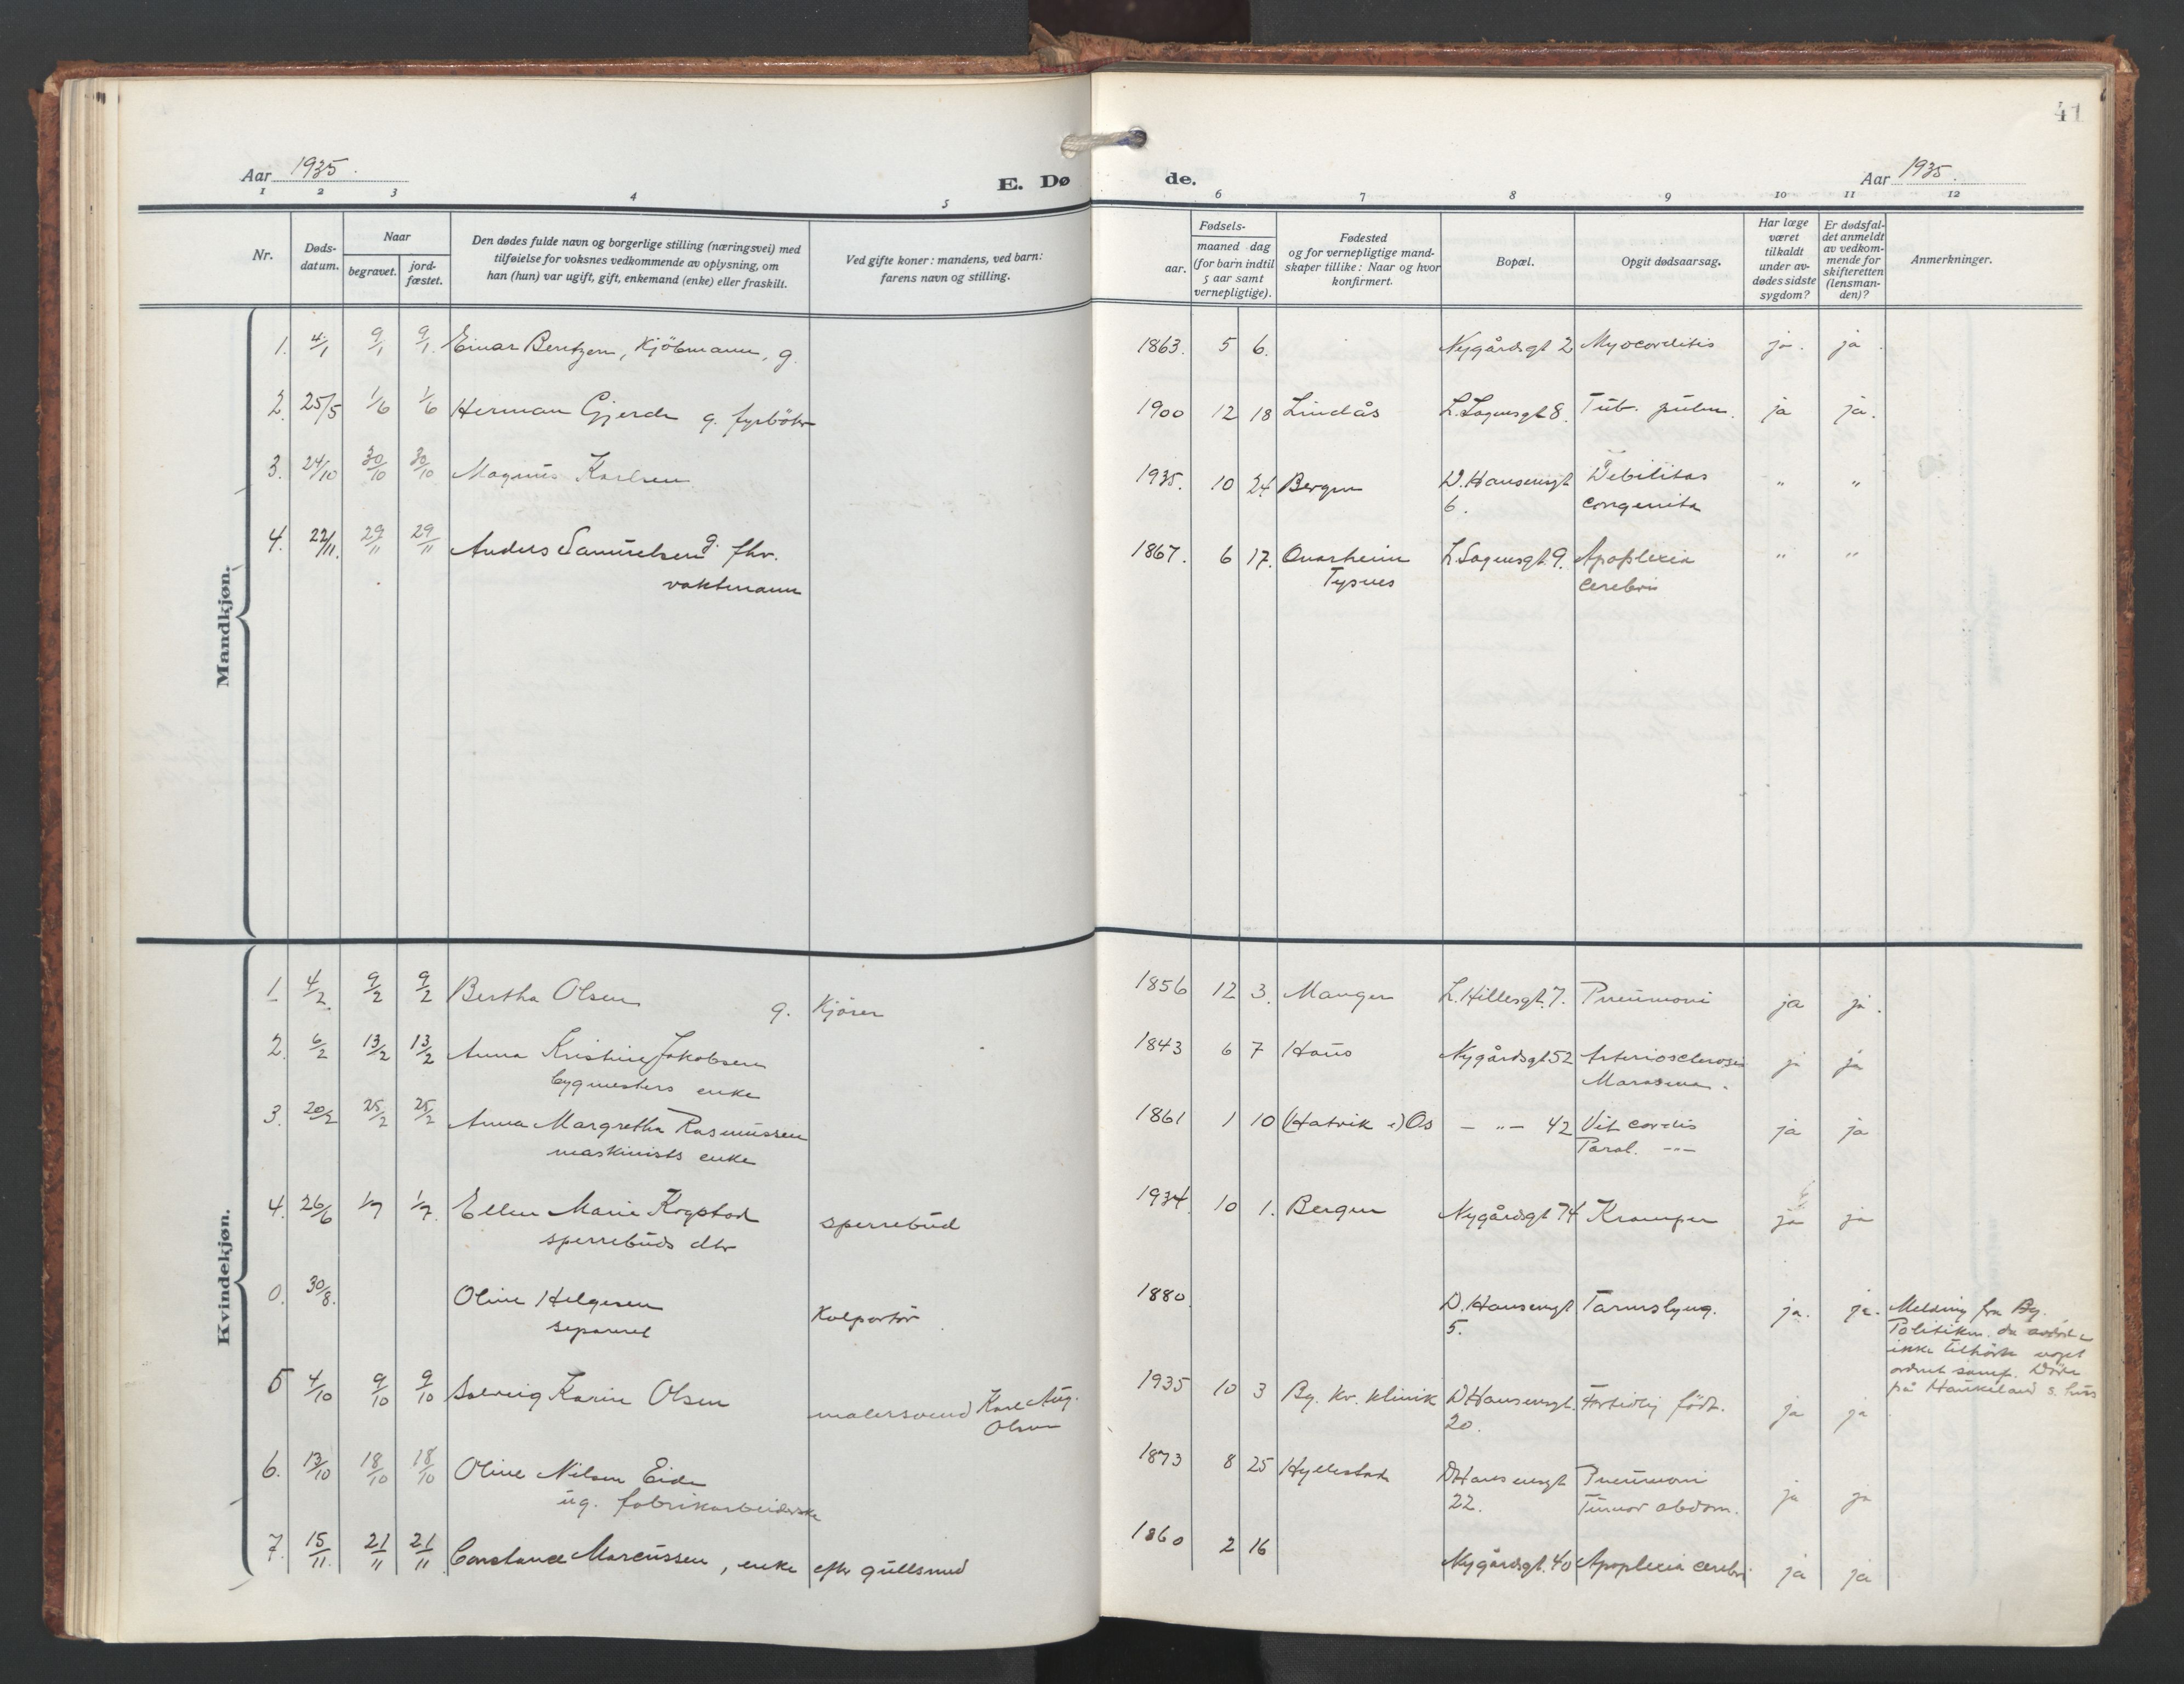 41
Aar 1935.
E. Dø
de.
Aar 1935.
1 2 3 4 5 6 7 8 9 10 11 12
Nr.
Døds-
datum.
Naar
begravet.
jord-
fæstet.
Den dødes fulde navn og borgerlige stilling (næringsvei) med
tilføielse for voksnes vedkommende av oplysning, om
han (hun) var ugift, gift, enkemand (enke) eller fraskilt.
Ved gifte koner: mandens, ved barn:
farens navn og stilling.
Fødsels-
aar.
maaned dag
(for barn indtil
5 aar samt
vernepligtige).
Fødested
og for vernepligtige mand-
skaper tillike: Naar og hvor
konfirmert.
Bopæl.
Opgit dødsaarsag.
Har læge
været
tilkaldt
under av-
dødes sidste
sygdom?
Er dødsfal-
det anmeldt
av vedkom-
mende for
skifteretten
(lensman-
den)?
Anmerkninger.
Mandkjøn.
1. 4/1 9/1 9/1. Einar Bentzen, Kjöbmann, g. 1863. 5 6. Nygårdsgt 2 Myocarditis ja. ja.
2. 25/5 1/6 1/6 Herman Gjerde g. fyrböter 1900 12 18 Lindås L. Sagensgt 8. Tub. pulm. ja ja.
3. 24/10 30/10 30/10 Magnus Karlsen 1935. 10 24 Bergen D. Hansensgt Debilitas " "
6. congenita
4. 22/11. 29/11 29/11 Anders Samuelsen g. fhv. 1867. 6 17. Onarheim L. Sagensgt 9. Apoplexia " "
vaktmann Tysnes cerebri
Kvindekjøn.
1. 4/2 9/2 9/2 Bertha Olsen g. Kjörer 1856 12 3. Manger L. Hillesgt. 7. Pneumoni ja ja.
2. 6/2 13/2 13/2 Anna Kristine Jakobsen 1843 6 7 Haus Nygårdsgt 52 Arteriosclerosis ja ja
bygmesters enke Marasmus.
3. 20/2 25/2 25/2 Anna Margretha Rasmussen 1861 1 10 (Hatvik i) Os - " - 42 Vit. cordis ja ja
maskinists enke Paral. -"-
4. 26/6 1/7 1/7. Ellen Marie Kogstad sperrebud 1934. 10 1. Bergen Nygårdsgt 74 Kramper ja ja
sperrebuds dtr
0. 30/8. Oline Helgesen Kolportör 1880. D. Hansensgt Tarmslyng. ja. ja. Melding fra Bg.
separert 5. Politikm. da avdöde
ikke tilhörte noget
ordnet samf. Döde
på Haukeland s. hus
5 4/10 9/10 9/10 Solveig Karin Olsen malersvend Karl Aug. 1935 10 3 Bg. kv. klinik D Hansensgt. Fortidlig födt. ja ja
Olsen 20.
6. 13/10 18/10 18/10 Oline Nilsen Eide 1873 8 25 Hyllestad D Hansensgt Pneumoni ja ja
ug. fabrikarbeiderske 22. Tumor abdom.
7. 15/11. 21/11 21/11 Constance Marcussen, enke efter gullsmed 1860 2 16 Nygårdsgt. 40 Apoplexia cerebri ja ja